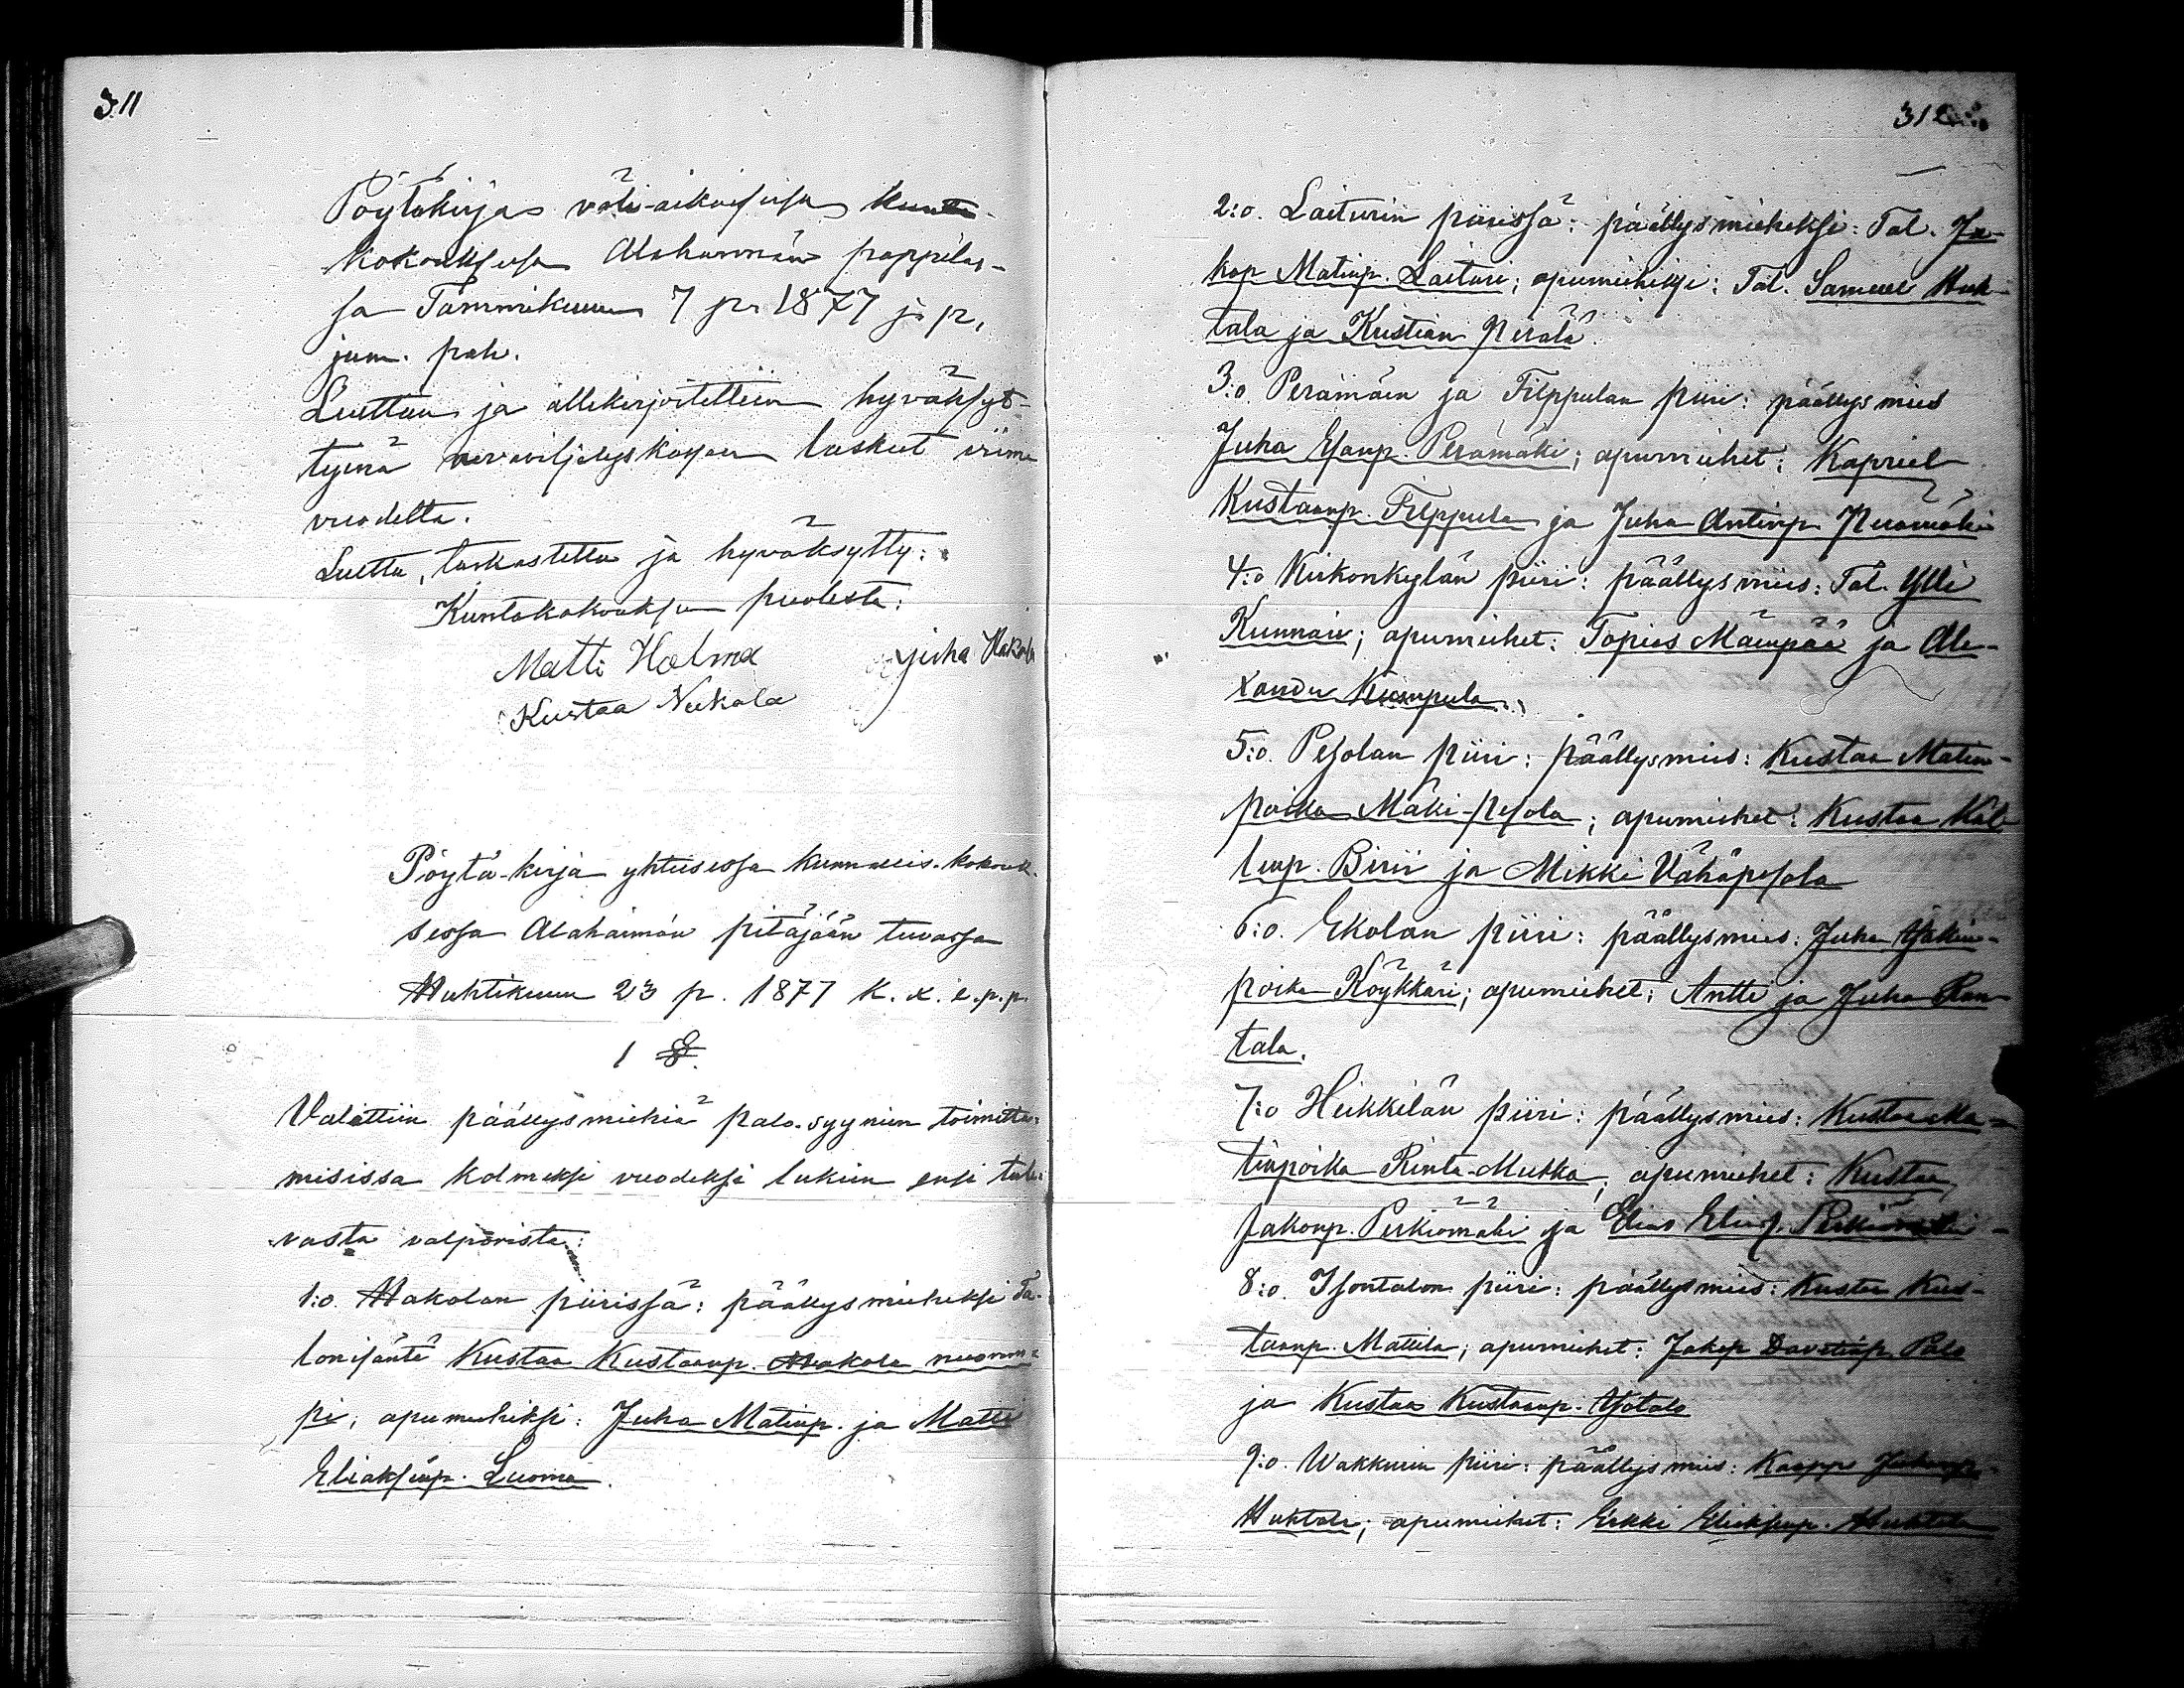 311
Pöytäkirja väli-aikaisessa kunta-
kokouksessa Alahärmän pappilas-
sa Tammikuun 7 p. 1877 j. p.
jum. palv.
Luettiin ja allekirjoitettiin hyväksyt-
tyinä vaivaisviljelyskassan laskut viime
vuodelta.
Luettu, tarkastettu ja hyväksytty:
Kuntakokouksen puolesta:
Matti Holma Juha Hakola
Kustaa Nukala
Pöytä-kirja yhteisessä kunnallis-kokouk-
sessa Alahärmän pitäjään tuvassa
Huhtikuun 23 p. 1877 k. x. e. p. p.
1 §.
Valittiin päällysmiehiä palo-syynien toimitta-
misissa kolmeksi vuodeksi lukien ensi tule-
vasta valporista:
1:o. Hakolan piirissä: päällysmieheksi Ta-
lonisäntä Kustaa Kustaanp. Hakola nuorem-
pi; apumiehiksi: Juha Matinp. ja Matti
Eliaksenp. Luoma.
312
2:o. Laiturin piirissä: päällysmieheksi: Tal. Ja-
kop Matinp. Laituri; apumiehiksi: Tal. Samuel Huh-
tala ja Kustian Perälä
3:o. Perämäen ja Filppulan piiri: päällysmies
Juha Esanp. Perämäki; apumiehet: Kapriel
Kustaanp. Filppula ja Juha Antinp. Perämäki
4:o Kirkonkylän piiri: päällysmies: Tal. Ylli
Kunnari; apumiehet: Topias Mäenpää ja Ale-
xander Kumpula.
5:o. Pesolan piiri: päällysmies: Kustaa Matin-
poika Mäki-pesola; apumiehet: Kustaa Kal-
linp. Birii ja Mikki Vähäpesola
6:o. Ekolan piiri: päällysmies: Juha Yrkin-
poika Köykkäri; apumiehet: Antti ja Juha Ran-
tala.
7:o Heikkilän piiri: päällysmies: Kustaa Ma-
tinpoika Rinta-Mukka; apumiehet: Kustaa
Jakonp. Perkiömäki ja Elias Elias. Perkiömäki
8:o. Isontalon piiri: päällysmies: Kustaa Kus-
taanp. Mattila; apumiehet: Jakop Davetinp. Palo
ja Kustaa Kustaanp. Ysotalo
9:o. Wakkurin piiri: päällysmies: Kaappo Juhanp.
Huhtala; apumiehet: Erkki Eliaksenp. Huhtala